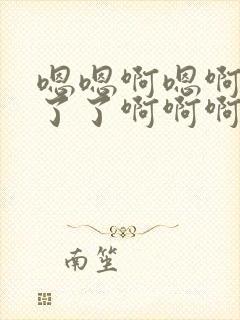 嗯嗯啊嗯啊
了了啊啊啊
南笙